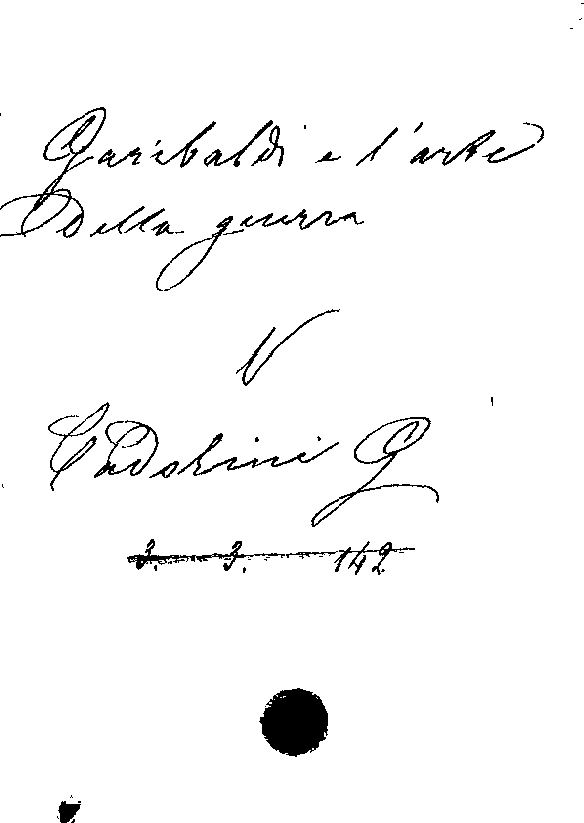 Garibaldi e l'arte
Della guerra
V
Cadolini G
3. 3. 142